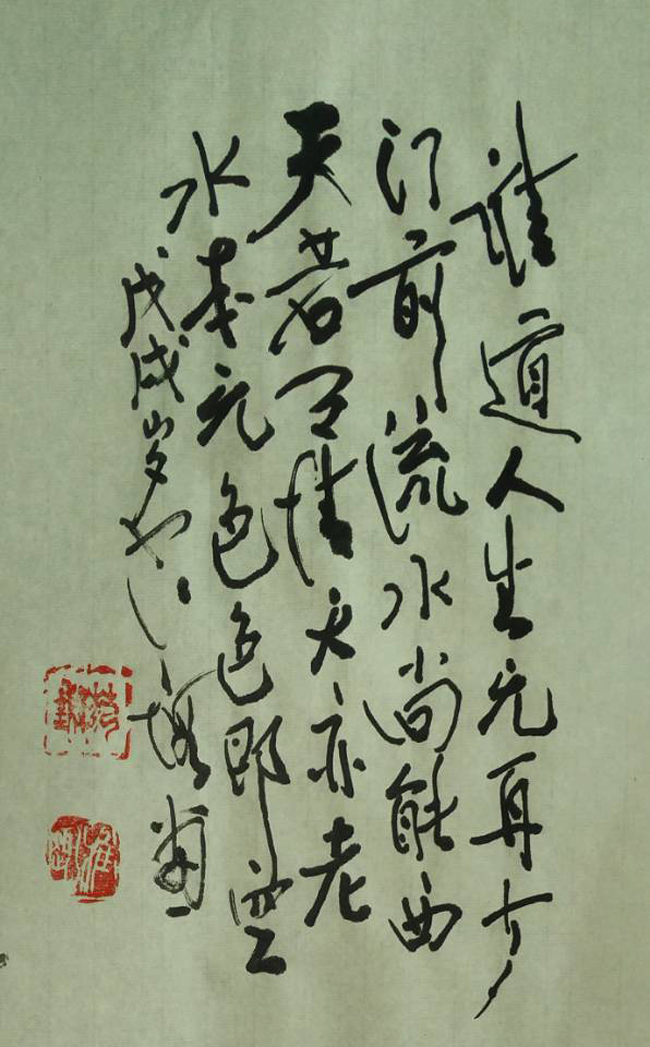 谁道人生无再少
门前流水尚能西
天若有情天亦老
水本无色色即空
戊戌岁